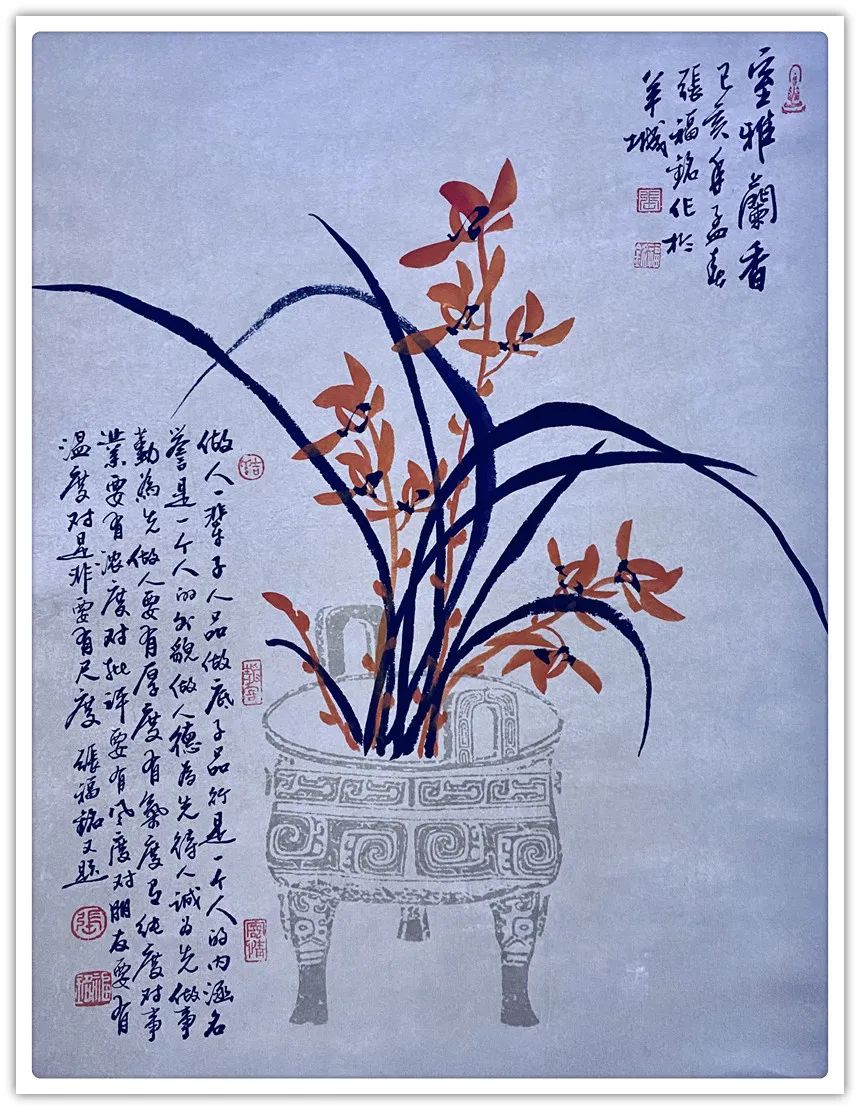 室雅蘭香
己亥年孟春
張福銘作於
羊城
張
做人一輩子人品做底子品行是一个人的内涵名
誉是一个人的外貌做人德为先待人诚为先做事
勤為先做人要有厚度有氣度有纯度对事
业要有浓度对批评要有风度对朋友要有
温度对是非要有尺度 張福銘又题
張